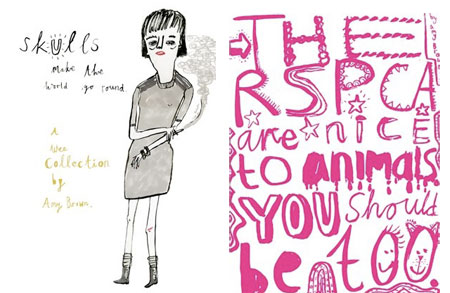 skulls
make the
world go round
a
wee
collection
by
Amy Brown.
THE
RSPCA
are NICE
to animals
YOU should
be too.